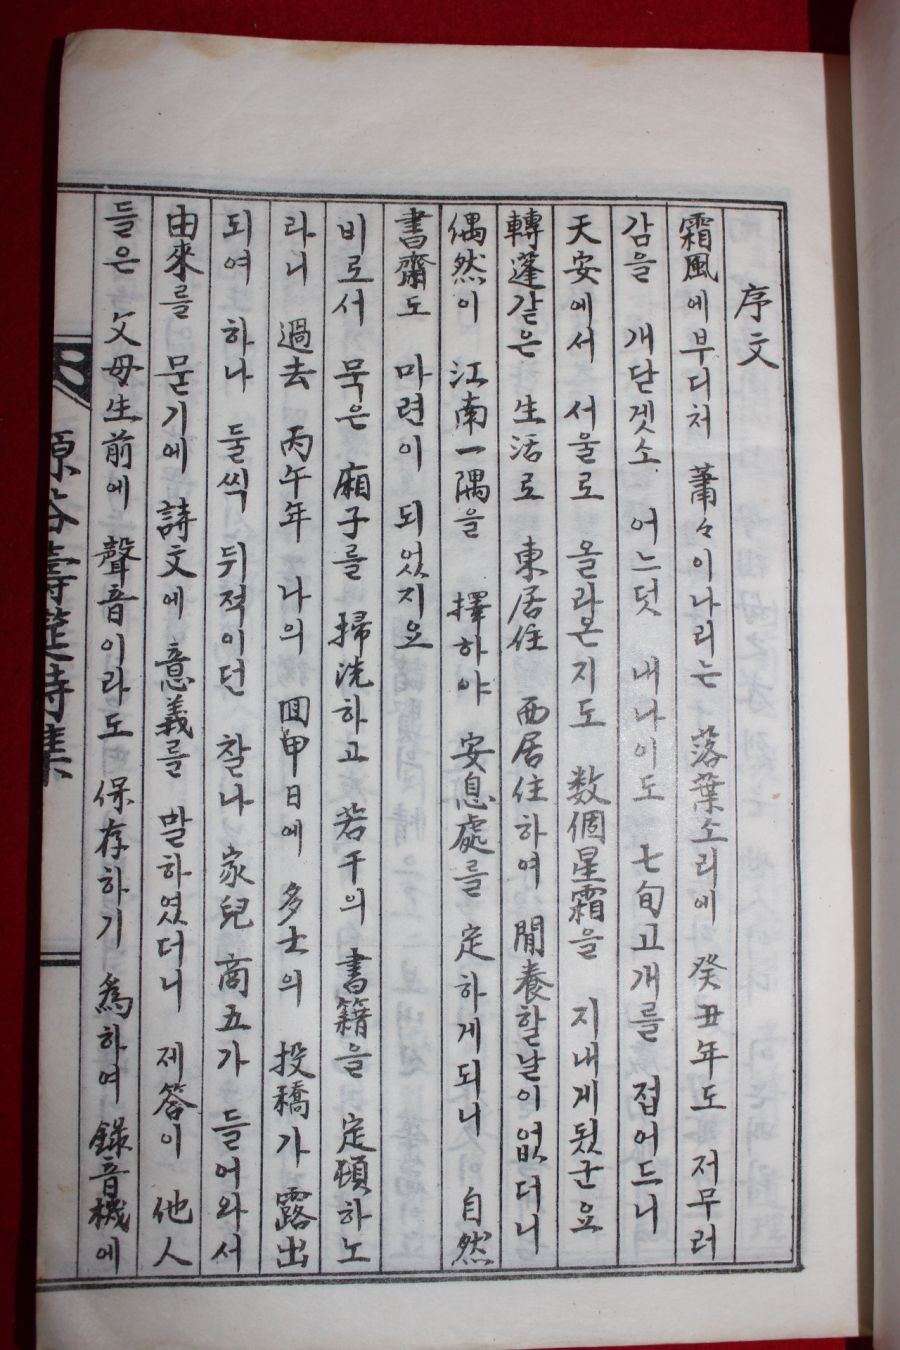 序文
霜風에부디처 蕭々이나리는 落葉소리에 癸丑年도 저무러
감을 개닫겟소 어느덧 내나이도 七旬고개를 접어드니
天安에서 서울로 올라온지도 数個星霜을 지내게됬군요
轉蓬갈은 生活로 東居住 西居住하여 閒養할날이없더니
偶然이 江南一隅을 擇하야 安息處를 定하게되니 自然
書齋도 마련이 되었지요
비로서 묵은 廂子를 掃洗하고 若干의 書籍을 定頓하노
라니 過去 丙午年 나의 回甲日에 多士의 投稿가 露出
되여 하나 둘씩 뒤적이던 찰나 家兒商五가 들어와서
由來를 묻기에 詩文에 意義를 말하였더니 제答이 他人
들은 父母生前에 聲音이라도 保存하기 爲하여 錄音機에